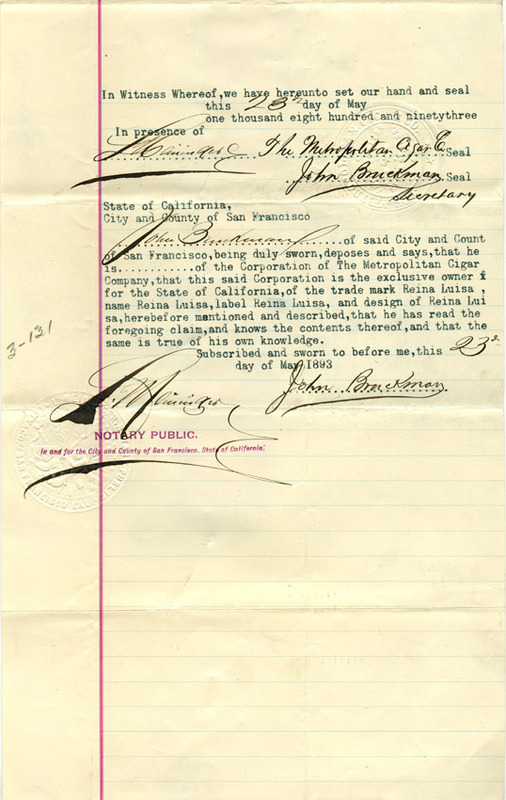 In Witness Whereof, we have hereunto set our hand and seal
this 23rd day of May
one thousand eight hundred and ninetythree
In presence of
The Metropolitan Cigar Co. Seal
John Bruckman Seal
Secretary
State of California,
City and County of San Francisco
John Bruckman of said City and Count
of San Francisco, being duly sworn, deposes and says, that he
is..........of the Corporation of The Metropolitan Cigar
Company, that this said Corporation is the exclusive owner
for the State of California, of the trade mark Reina Luisa ,
name Reina Luisa, label Reina Luisa, and design of Reina Lui
sa, herebefore mentioned and described, that he has read the
foregoing claim, and knows the contents thereof, and that the
same is true of his own knowledge.
3-131
Subscribed and sworn to before me, this 23d
day of May 1893
John Bruckman
NOTARY PUBLIC.
In and for the City and County of San Francisco, State of California.